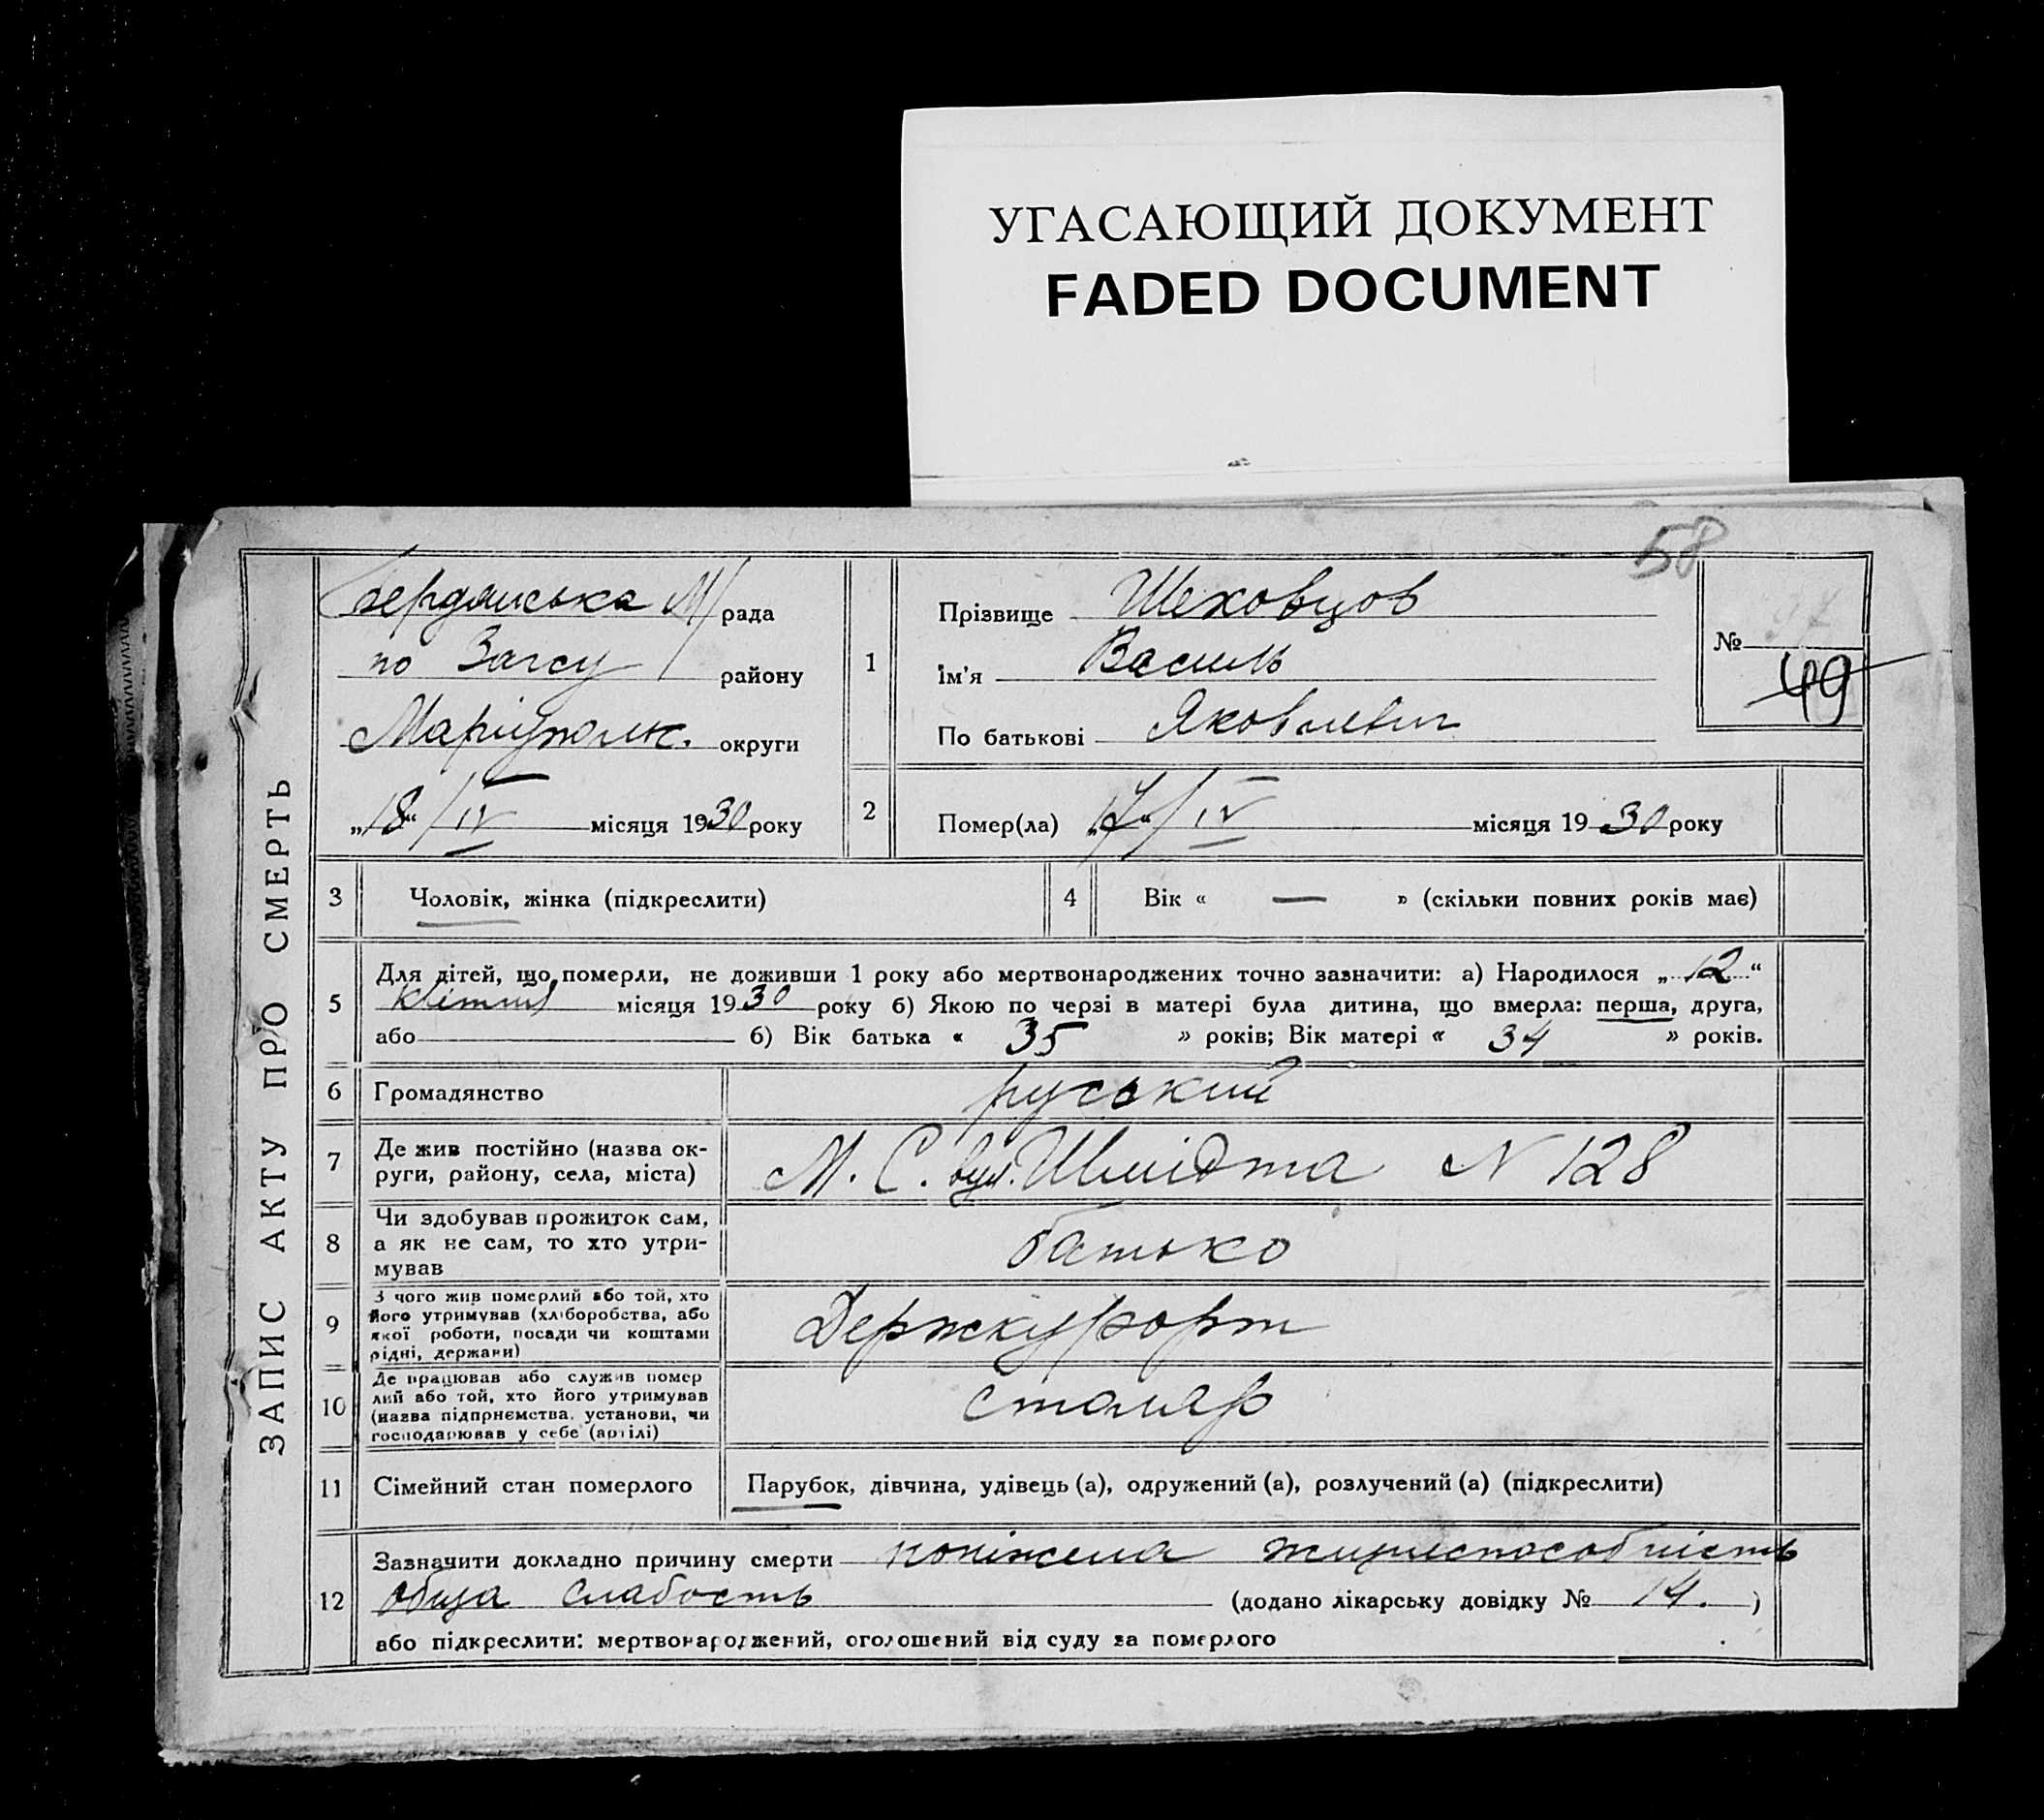 УГАСАЮЩИЙ ДОКУМЕНТ
FADED DOCUMENT
58
ЗАПИС АКТУ ПРО СМЕРТЬ
Бердянська М/рада
по Загсу району
Маріупольк. округи
„18“/IV місяця 1930 року
1
Прізвище Шеховцов
Ім'я Василь
По батькові Яковлевич
№ 37
49
2
Помер(ла) „17“/IV місяця 1930 року
3 Чоловік, жінка (підкреслити)
4 Вік « — » (скільки повних років має)
5 Для дітей, що померли, не доживши 1 року або мертвонароджених точно зазначити: а) Народилося „12“
квітня місяця 1930 року б) Якою по черзі в матері була дитина, що вмерла: перша, друга,
або б) Вік батька « 35 » років; Вік матері « 34 » років.
6 Громадянство руський
7 Де жив постійно (назва ок-
руги, району, села, міста) М. С. вул. Шмідта N 128
8 Чи здобував прожиток сам,
а як не сам, то хто утри-
мував батько
9 З чого жив померлий або той, хто
його утримував (хліборобства, або
якої роботи, посади чи коштами
рідні, держави) Держкурорт
10 Де працював або служив помер
лий або той, хто його утримував
(назва підприємства, установи, чи
господарював у себе (артілі) столяр
11 Сімейний стан померлого Парубок, дівчина, удівець (а), одружений (а), розлучений (а) (підкреслити)
12 Зазначити докладно причину смерти поніжена жизнеспособність
обща слабость (додано лікарську довідку № 14. )
або підкреслити: мертвонароджений, оголошений від суду за померлого